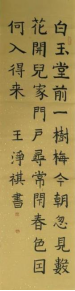 白玉堂前一樹梅今朝忽見數
花開兒家門戶尋常閉春色因
何入得來　王淨祺書